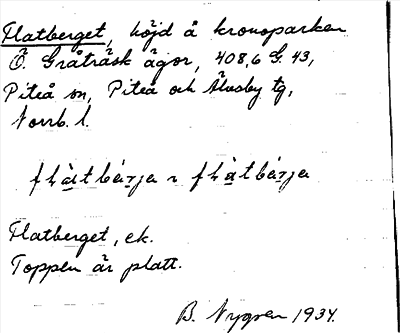 Flatberget, höjd å kronoparken
Ö. Gråträsk ägor, 408,6 G. 43,
Piteå sn, Piteå och Älvsby tg,
Norrb. l.
Flatberget, ek.
Toppen är platt.
B. Nygren 1934.